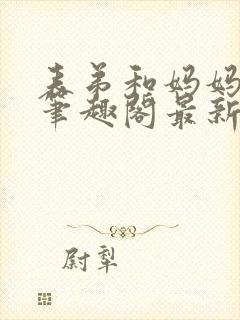 表弟和妈妈
笔趣阁最新
尉犁